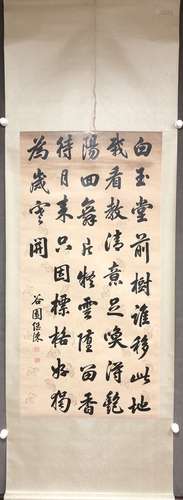 白玉堂前樹誰移此地
栽看教清意足喚得艷
陽回舞片凝雲墮留香
待月來只因標格好獨
為歲寒開
谷園繼涑